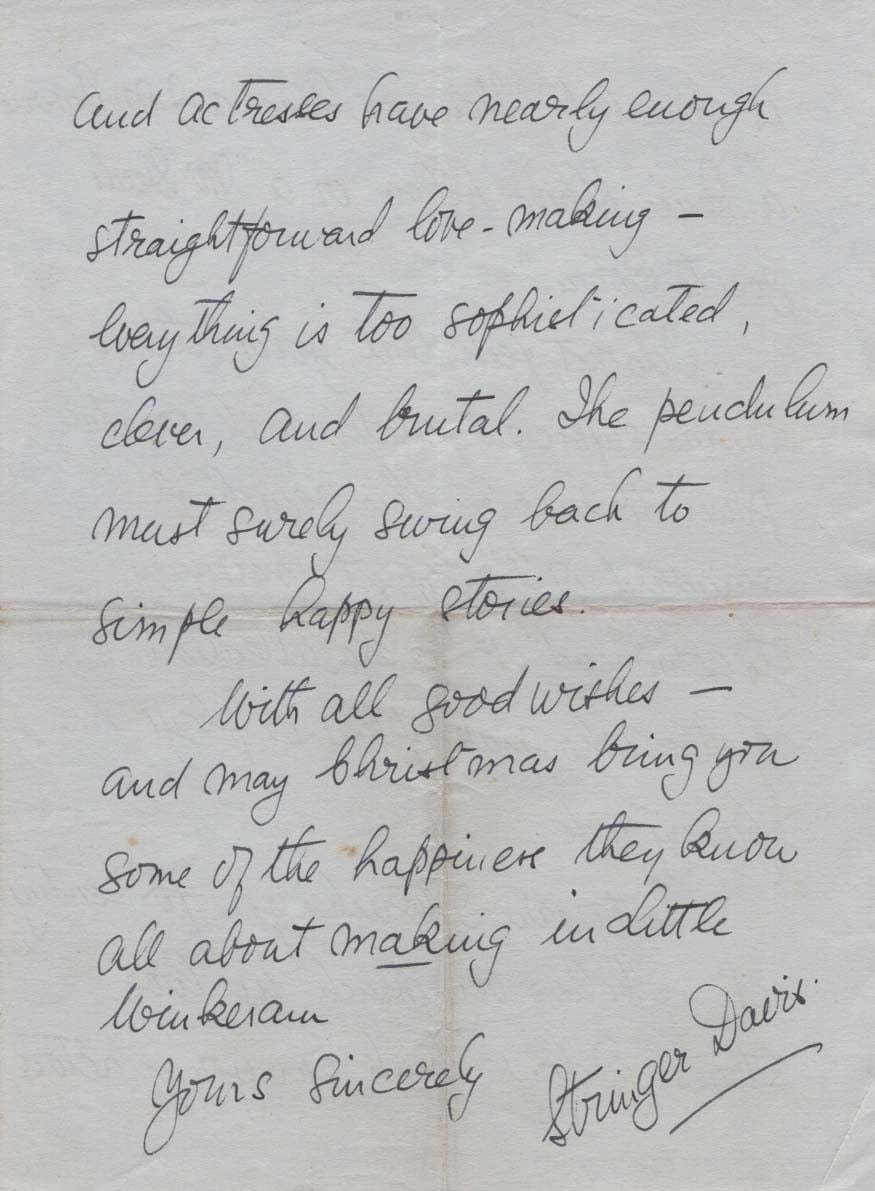 and actresses have nearly enough
straightforward love-making –
everything is too sophisticated,
clever, and brutal. The pendulum
must surely swing back to
simple happy stories.
With all good wishes –
and may Christmas bring you
some of the happiness they know
all about making in Little
Winkeram
Yours sincerely
Stringer Davis.